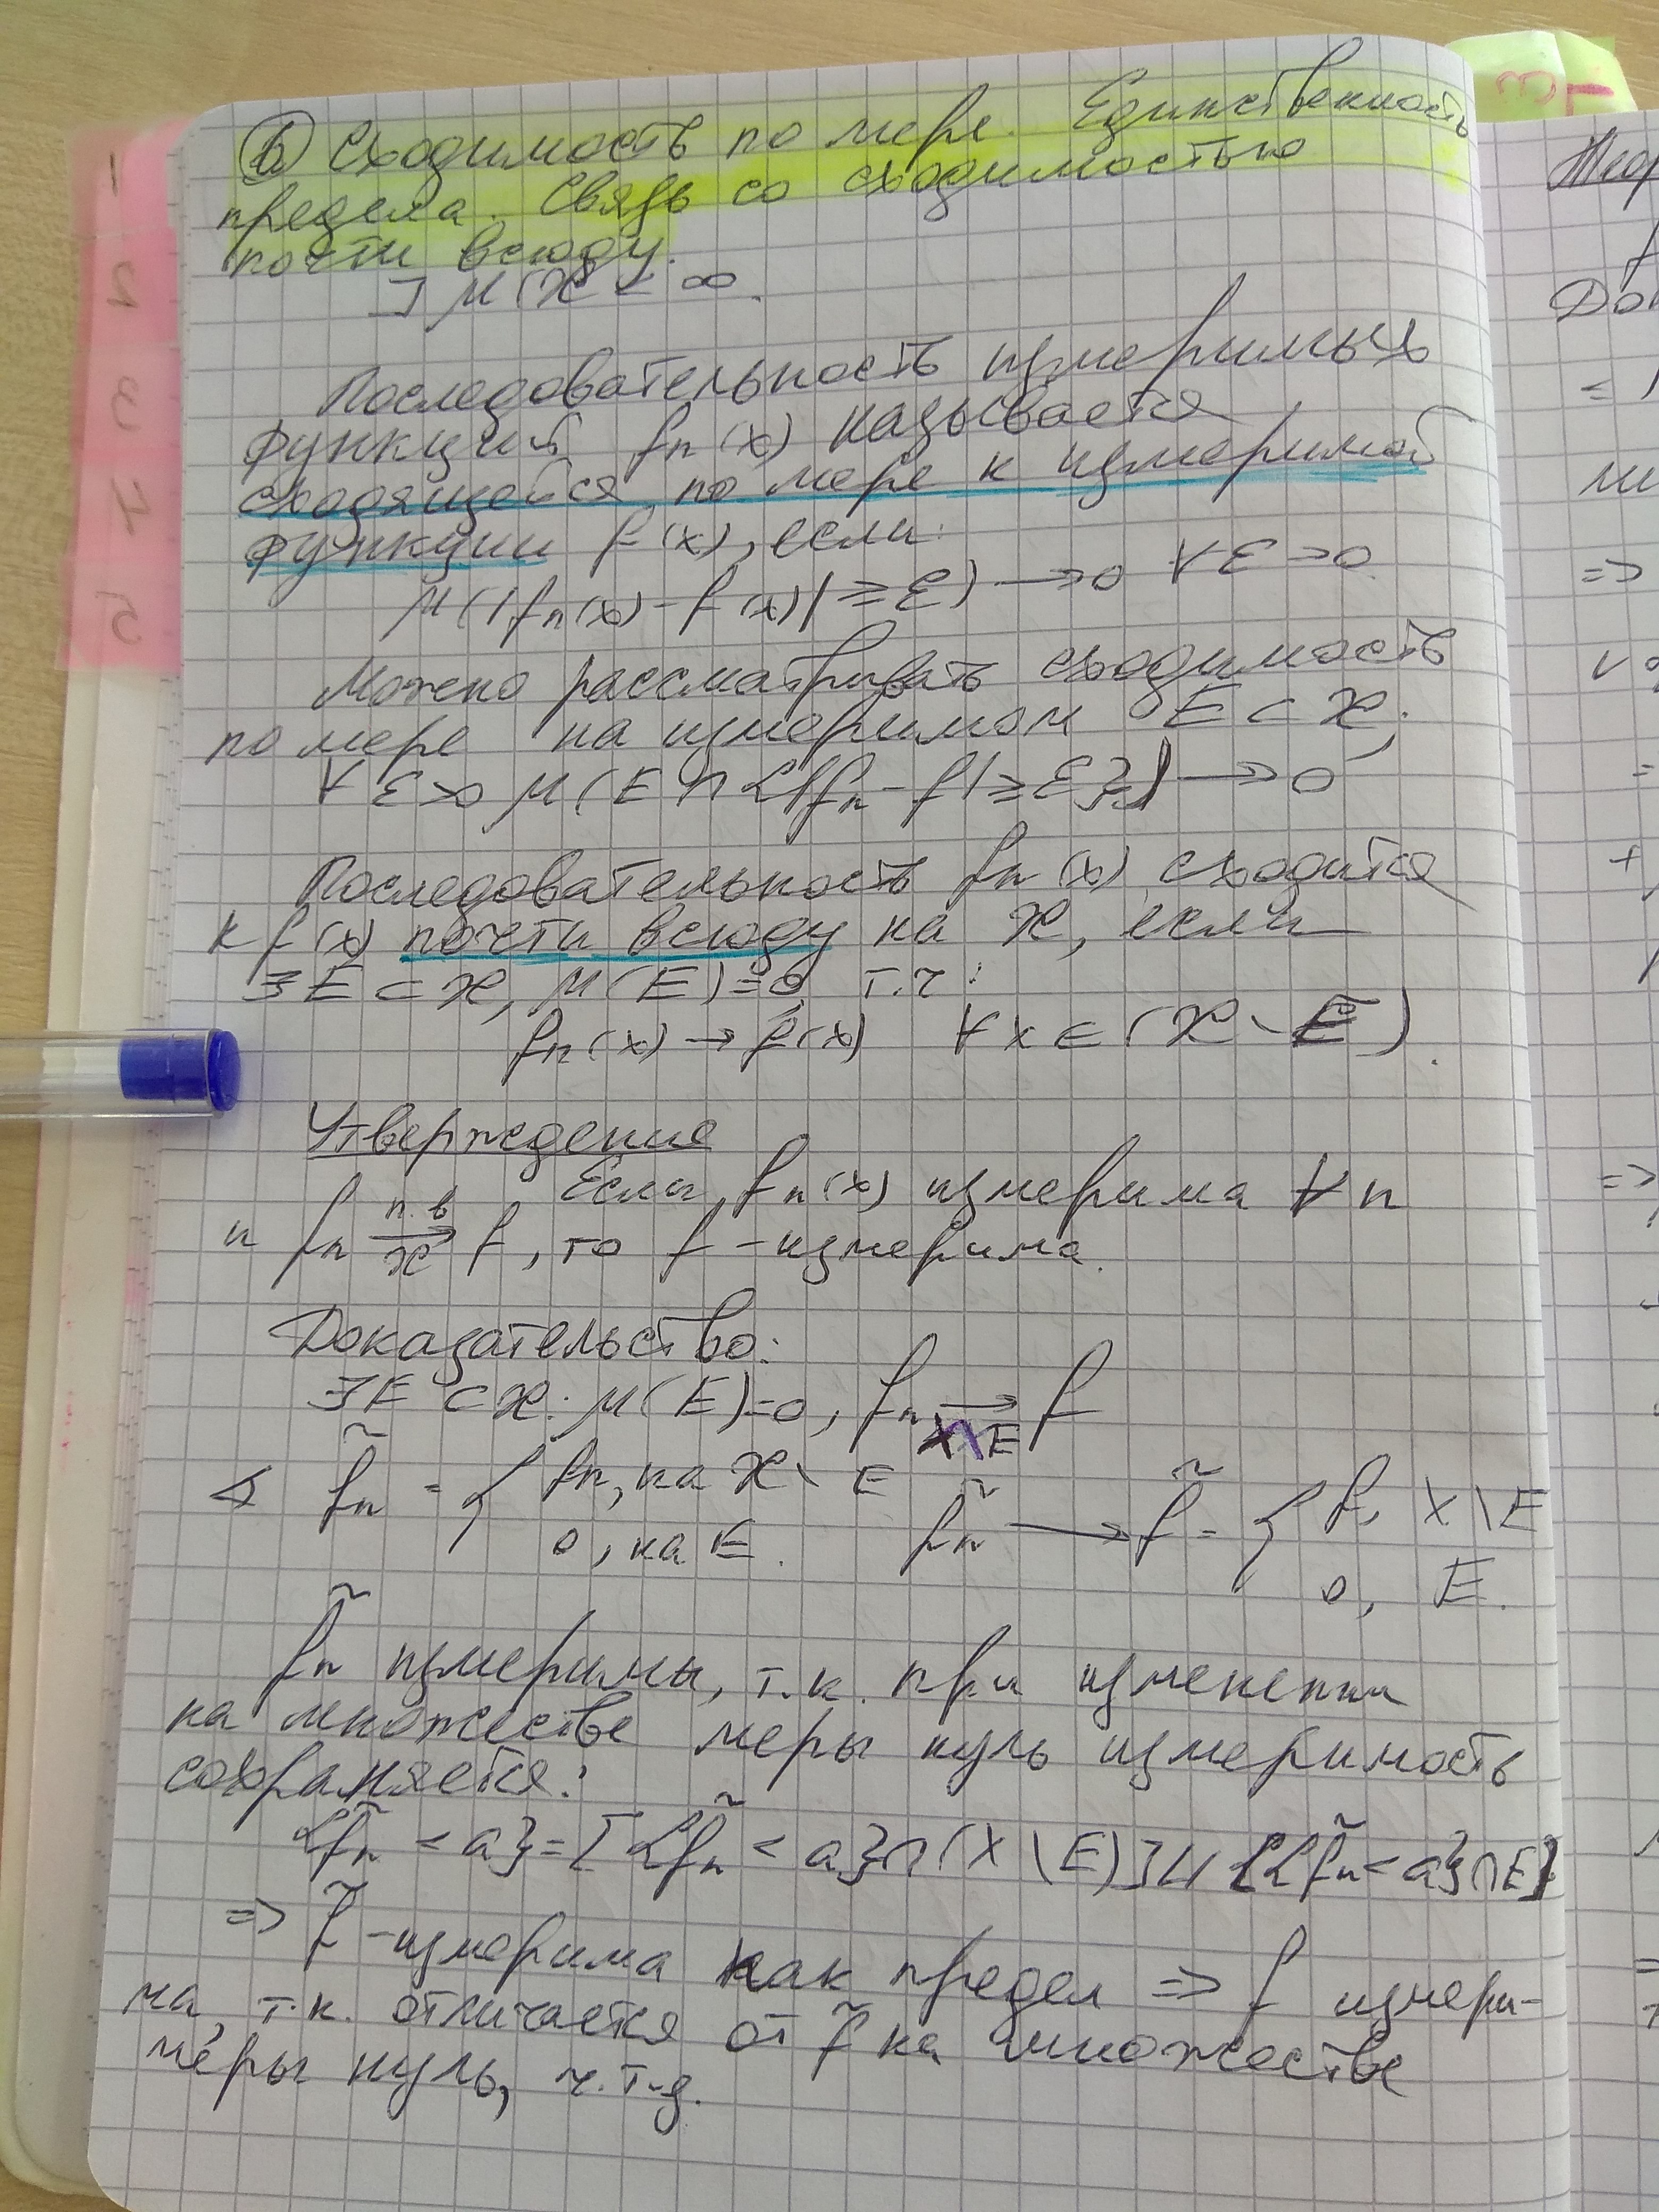 ⑥ Сходимость по мере. Единственность
предела. Связь со сходимостью
почти всюду.
⅃ μ(X) < ∞.
Последовательность измеримых
функций fn(x) называется
сходящейся по мере к измеримой
функции f(x), если:
μ(|fn(x) - f(x)| ≥ ε) → 0 ∀ε > 0.
Можно рассматривать сходимость
по мере на измеримом E ⊂ X:
∀ε>0 μ(E ∩ {|fn - f| ≥ ε}) → 0
Последовательность fn(x) сходится
к f(x) почти всюду на X, если
∃E ⊂ X, μ(E)=0, т.ч:
fn(x) → f(x) ∀x ∈ (X \ E).
Утверждение
Если fn(x) измерима ∀n
и fn п.в→X f, то f - измерима.
Доказательство:
∃E ⊂ X: μ(E)=0, fn →X\E f
∢ f̃n = { fn, на X \ E
0, на E. f̃n → f̃ = { f, X \ E
0, E.
f̃n измеримы, т.к. при изменении
на множестве меры нуль измеримость
сохраняется:
{f̃n < a} = [{f̃n < a} ∩ (X \ E)] ⊔ [{f̃n < a} ∩ E]
=> f̃ - измерима как предел => f измери-
ма, т.к. отличается от f̃ на множестве
меры нуль, ч.т.д.
1
5